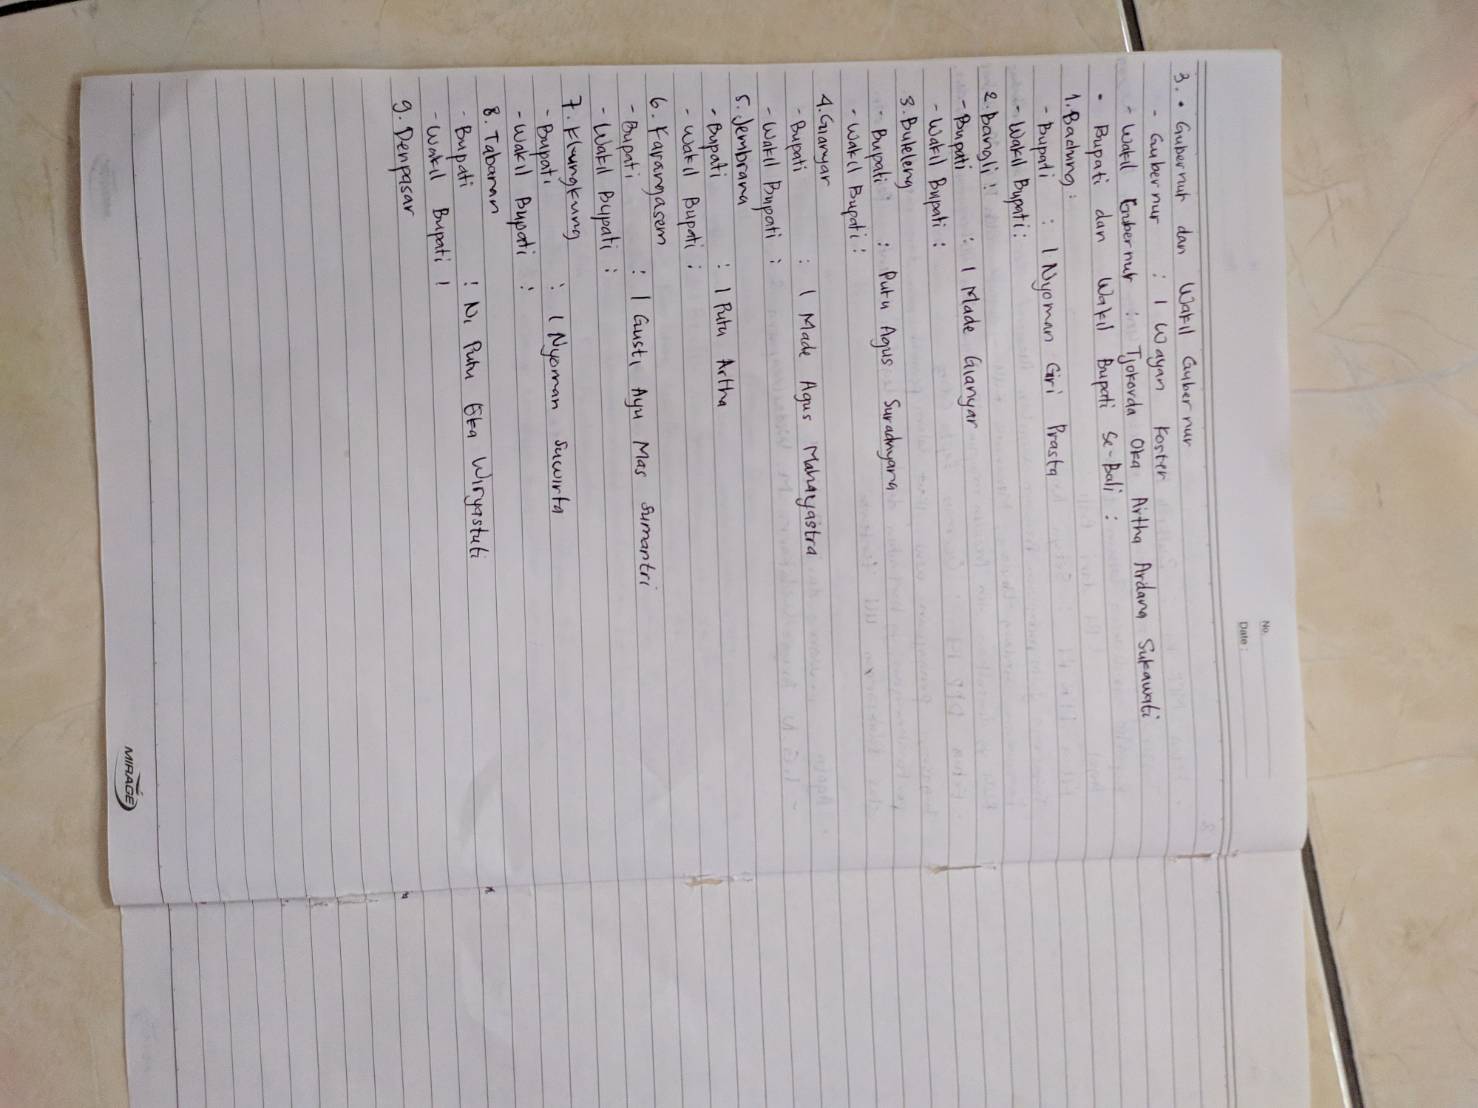 No.
Date :
3. • Gubernur dan Wakil Gubernur
- Gubernur : I Wayan Koster
- Wakil Gubernur : Tjokorda Oka Airtha Ardana Sukawati
• Bupati dan Wakil Bupati Se-Bali :
1. Badung :
- Bupati : I Nyoman Giri Prasta
- Wakil Bupati :
2. Bangli :
- Bupati : I Made Gianyar
- Wakil Bupati :
3. Buleleng
- Bupati : Putu Agus Suradnyana
- Wakil Bupati :
4. Gianyar
- Bupati : I Made Agus Mahayastra
- Wakil Bupati :
5. Jembrana
- Bupati : I Putu Artha
- Wakil Bupati :
6. Karangasem
- Bupati : I Gusti Ayu Mas Sumantri
- Wakil Bupati :
7. Klungkung
- Bupati : I Nyoman Suwirta
- Wakil Bupati :
8. Tabanan
- Bupati : Ni Putu Eka Wiryastuti
- Wakil Bupati :
9. Denpasar
MIRAGE